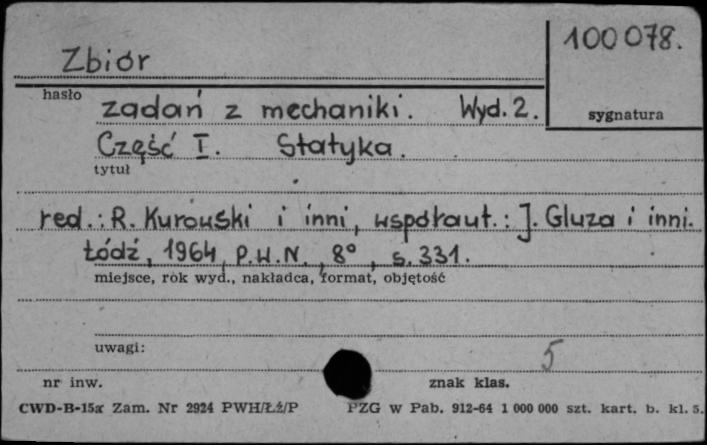 Zbiór
100 078.
hasło
sygnatura
zadań z mechaniki. Wyd. 2.
Część I. Statyka.
tytuł
red.: R. Kurowski i inni, współaut.: J. Gluza i inni.
Łódź, 1964, P.W.N., 8°, s. 331.
miejsce, rok wyd., nakładca, format, objętość
uwagi:
5
nr inw.
znak klas.
CWD-B-15a Zam. Nr 2924 PWH/Łź/P PZG w Pab. 912-64 1 000 000 szt. kart. b. kl. 5.